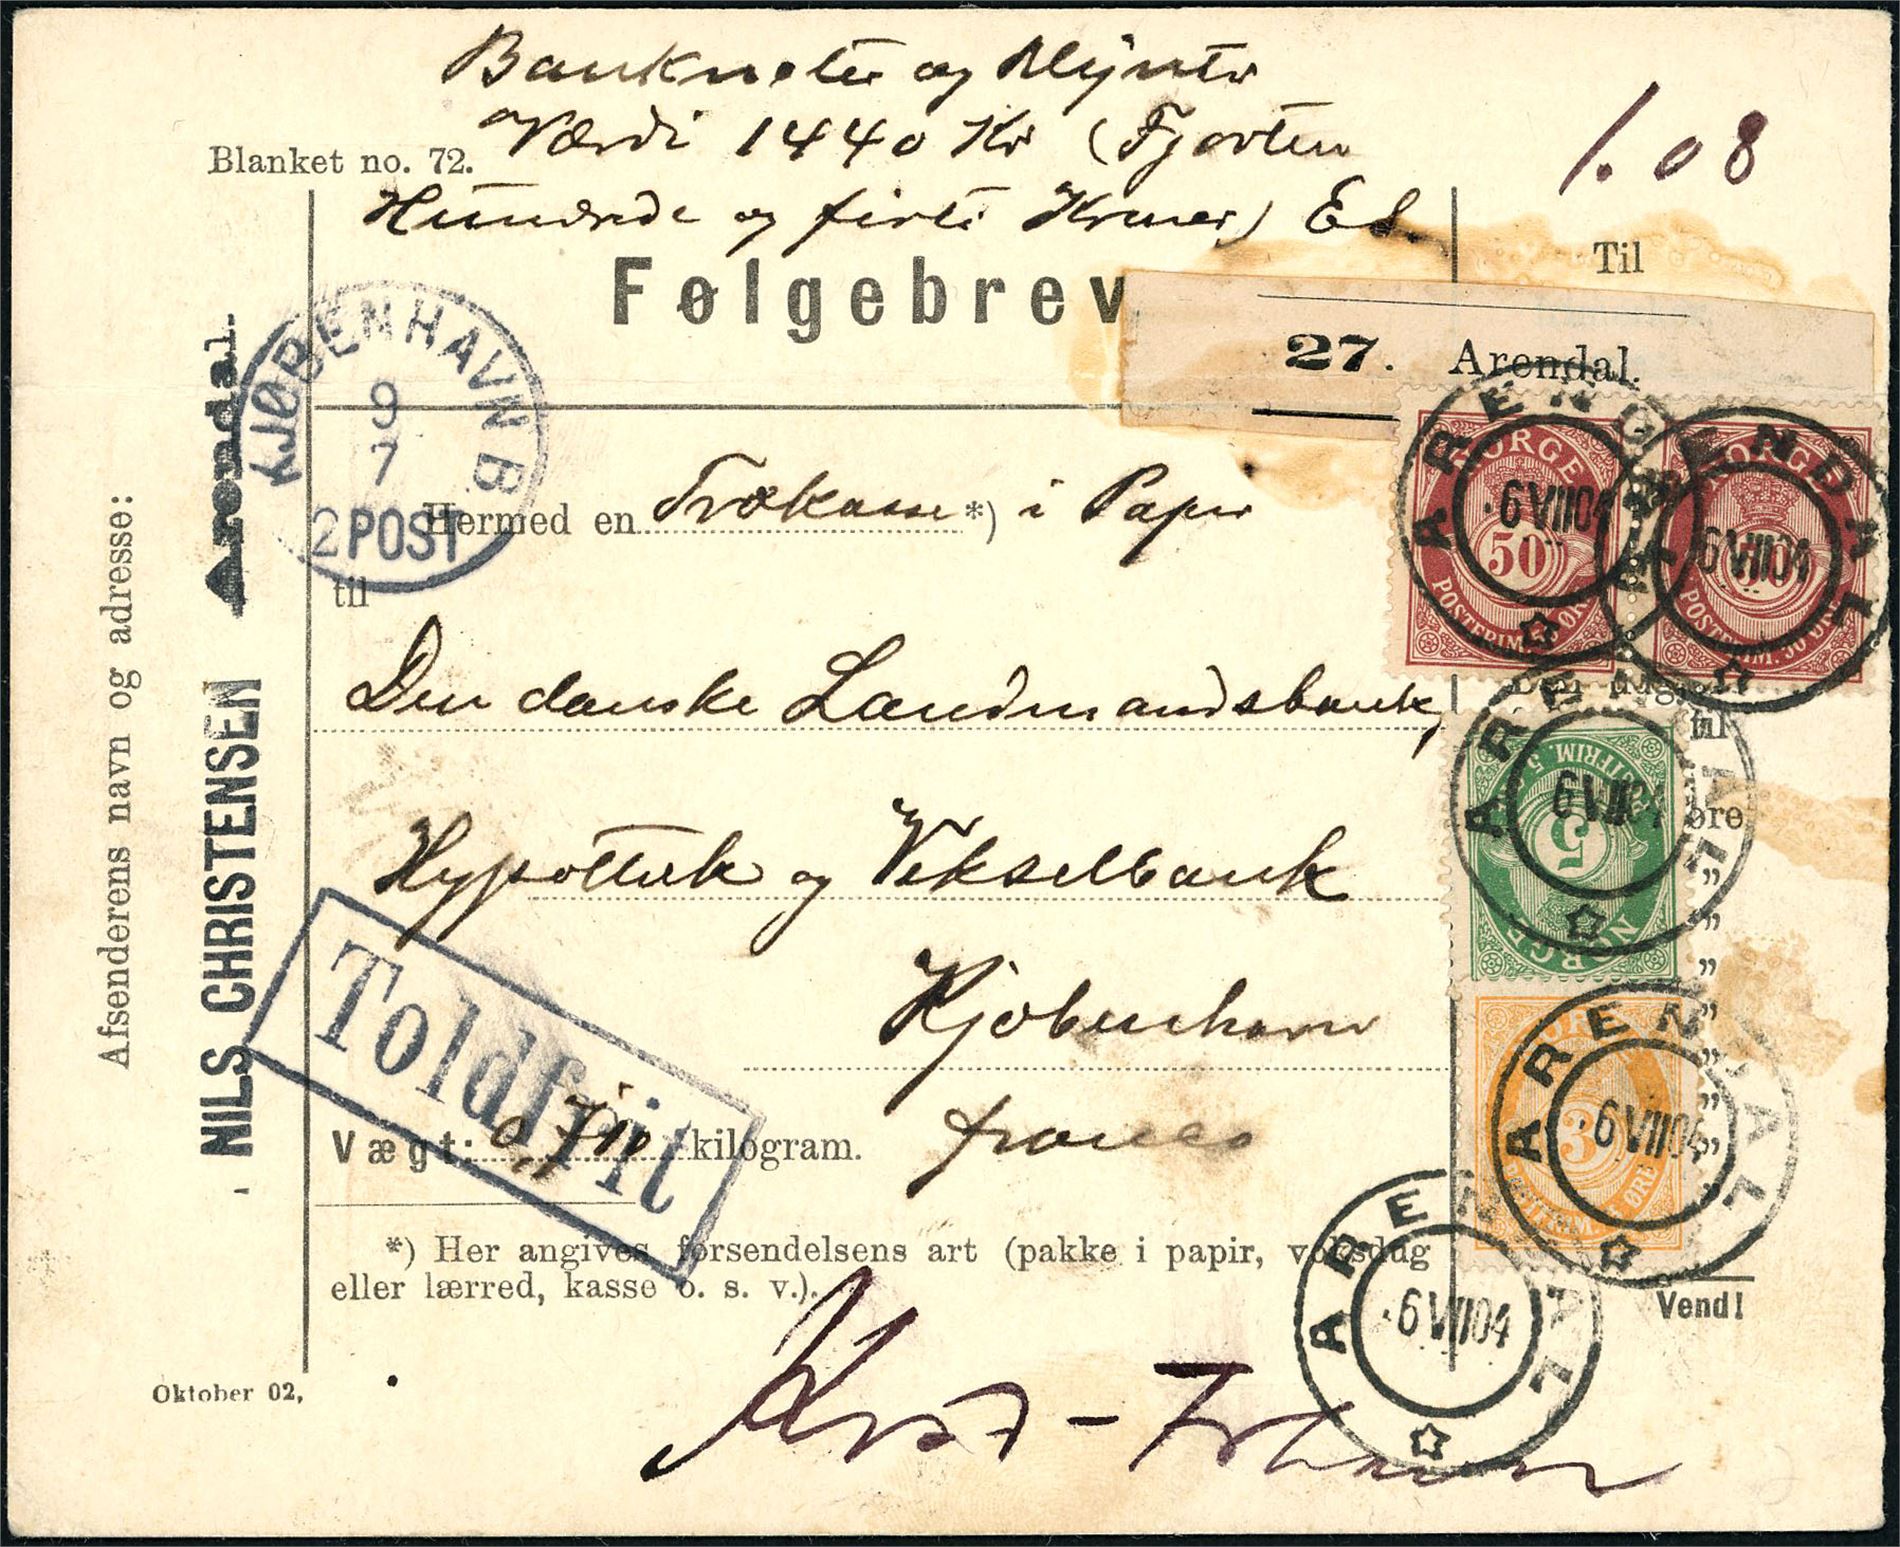 Banknoter og Mynter
Værdi 1440 Kr (Fjorten
Hundrede og firti Kroner) Es.
1.08
Blanket no. 72.
Følgebrev
Til
27. Arendal.
KJØBENHAVN B
9
7
2 POST
Hermed en Trækasse *) i Papir
til
Den danske Landmandsbank,
Hypothek og Vekselbank
Kjøbenhavn
franco
Vægt: 0,710 kilogram.
Toldfrit
*) Her angives forsendelsens art (pakke i papir, voksdug
eller lærred, kasse o. s. v.).
Oktober 02.
Afsenderens navn og adresse:
NILS CHRISTENSEN Arendal.
NORGE
50
POSTFRIM. 50 ØRE
ARENDAL
6 VII 04
NORGE
50
POSTFRIM. 50 ØRE
ARENDAL
6 VII 04
til
øre
NORGE
5
POSTFRIM. 5
ARENDAL
6 VII 04
NORGE
3
POSTFRIM. 3 ØRE
ARENDAL
6 VII 04
ARENDAL
6 VII 04
Vend!